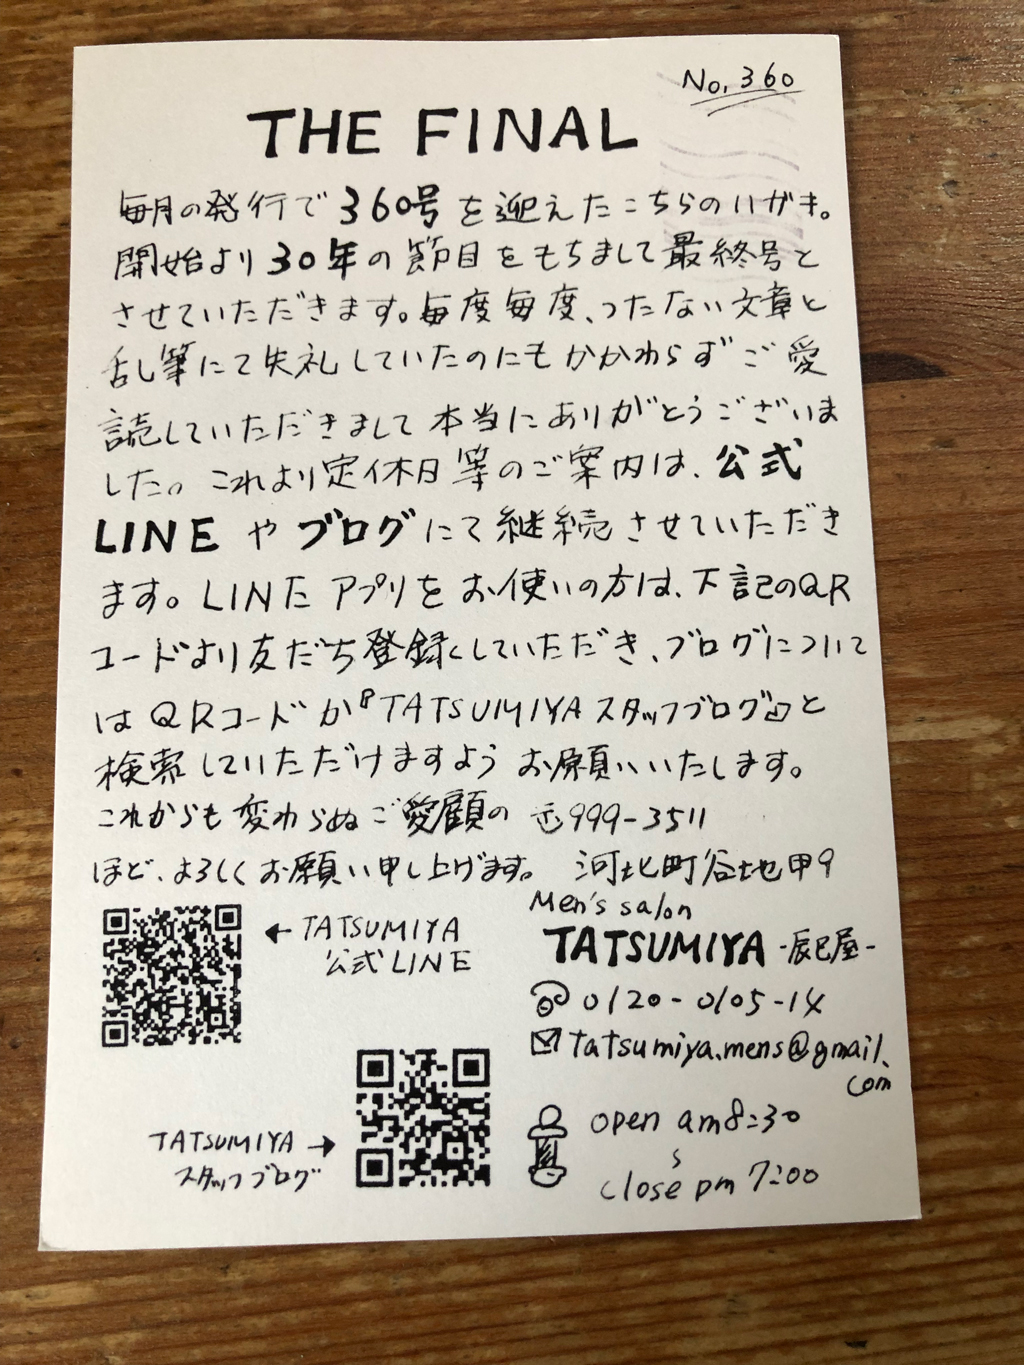 No.360
THE FINAL
毎月の発行で360号を迎えたこちらのハガキ。
開始より30年の節目をもちまして最終号と
させていただきます。毎度毎度、つたない文章と
乱筆にて失礼していたのにもかかわらずご愛
読していただきまして本当にありがとうございま
した。これより定休日等のご案内は、公式
LINEやブログにて継続させていただき
ます。LINEアプリをお使いの方は、下記のQR
コードより友だち登録していただき、ブログについて
はQRコードか『TATSUMIYAスタッフブログ』と
検索していただけますようお願いいたします。
これからも変わらぬご愛顧の
ほど、よろしくお願い申し上げます。
〒999-3511
河北町谷地甲9
Men's salon
TATSUMIYA -辰巳屋-
0120-0105-14
tatsumiya.mens@gmail.
com
open am8:30
〜
close pm 7:00
← TATSUMIYA
公式LINE
TATSUMIYA →
スタッフブログ